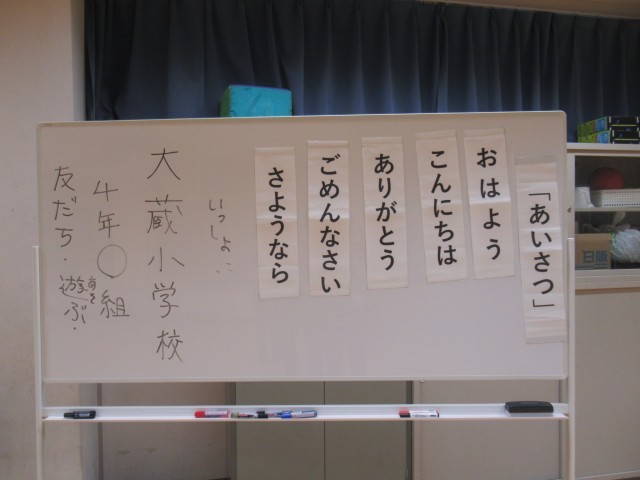 「あいさつ」
おはよう
こんにちは
ありがとう
ごめんなさい
さようなら
いっしょに
大蔵小学校
4年〇組
友だち・遊ぶ・
あそ